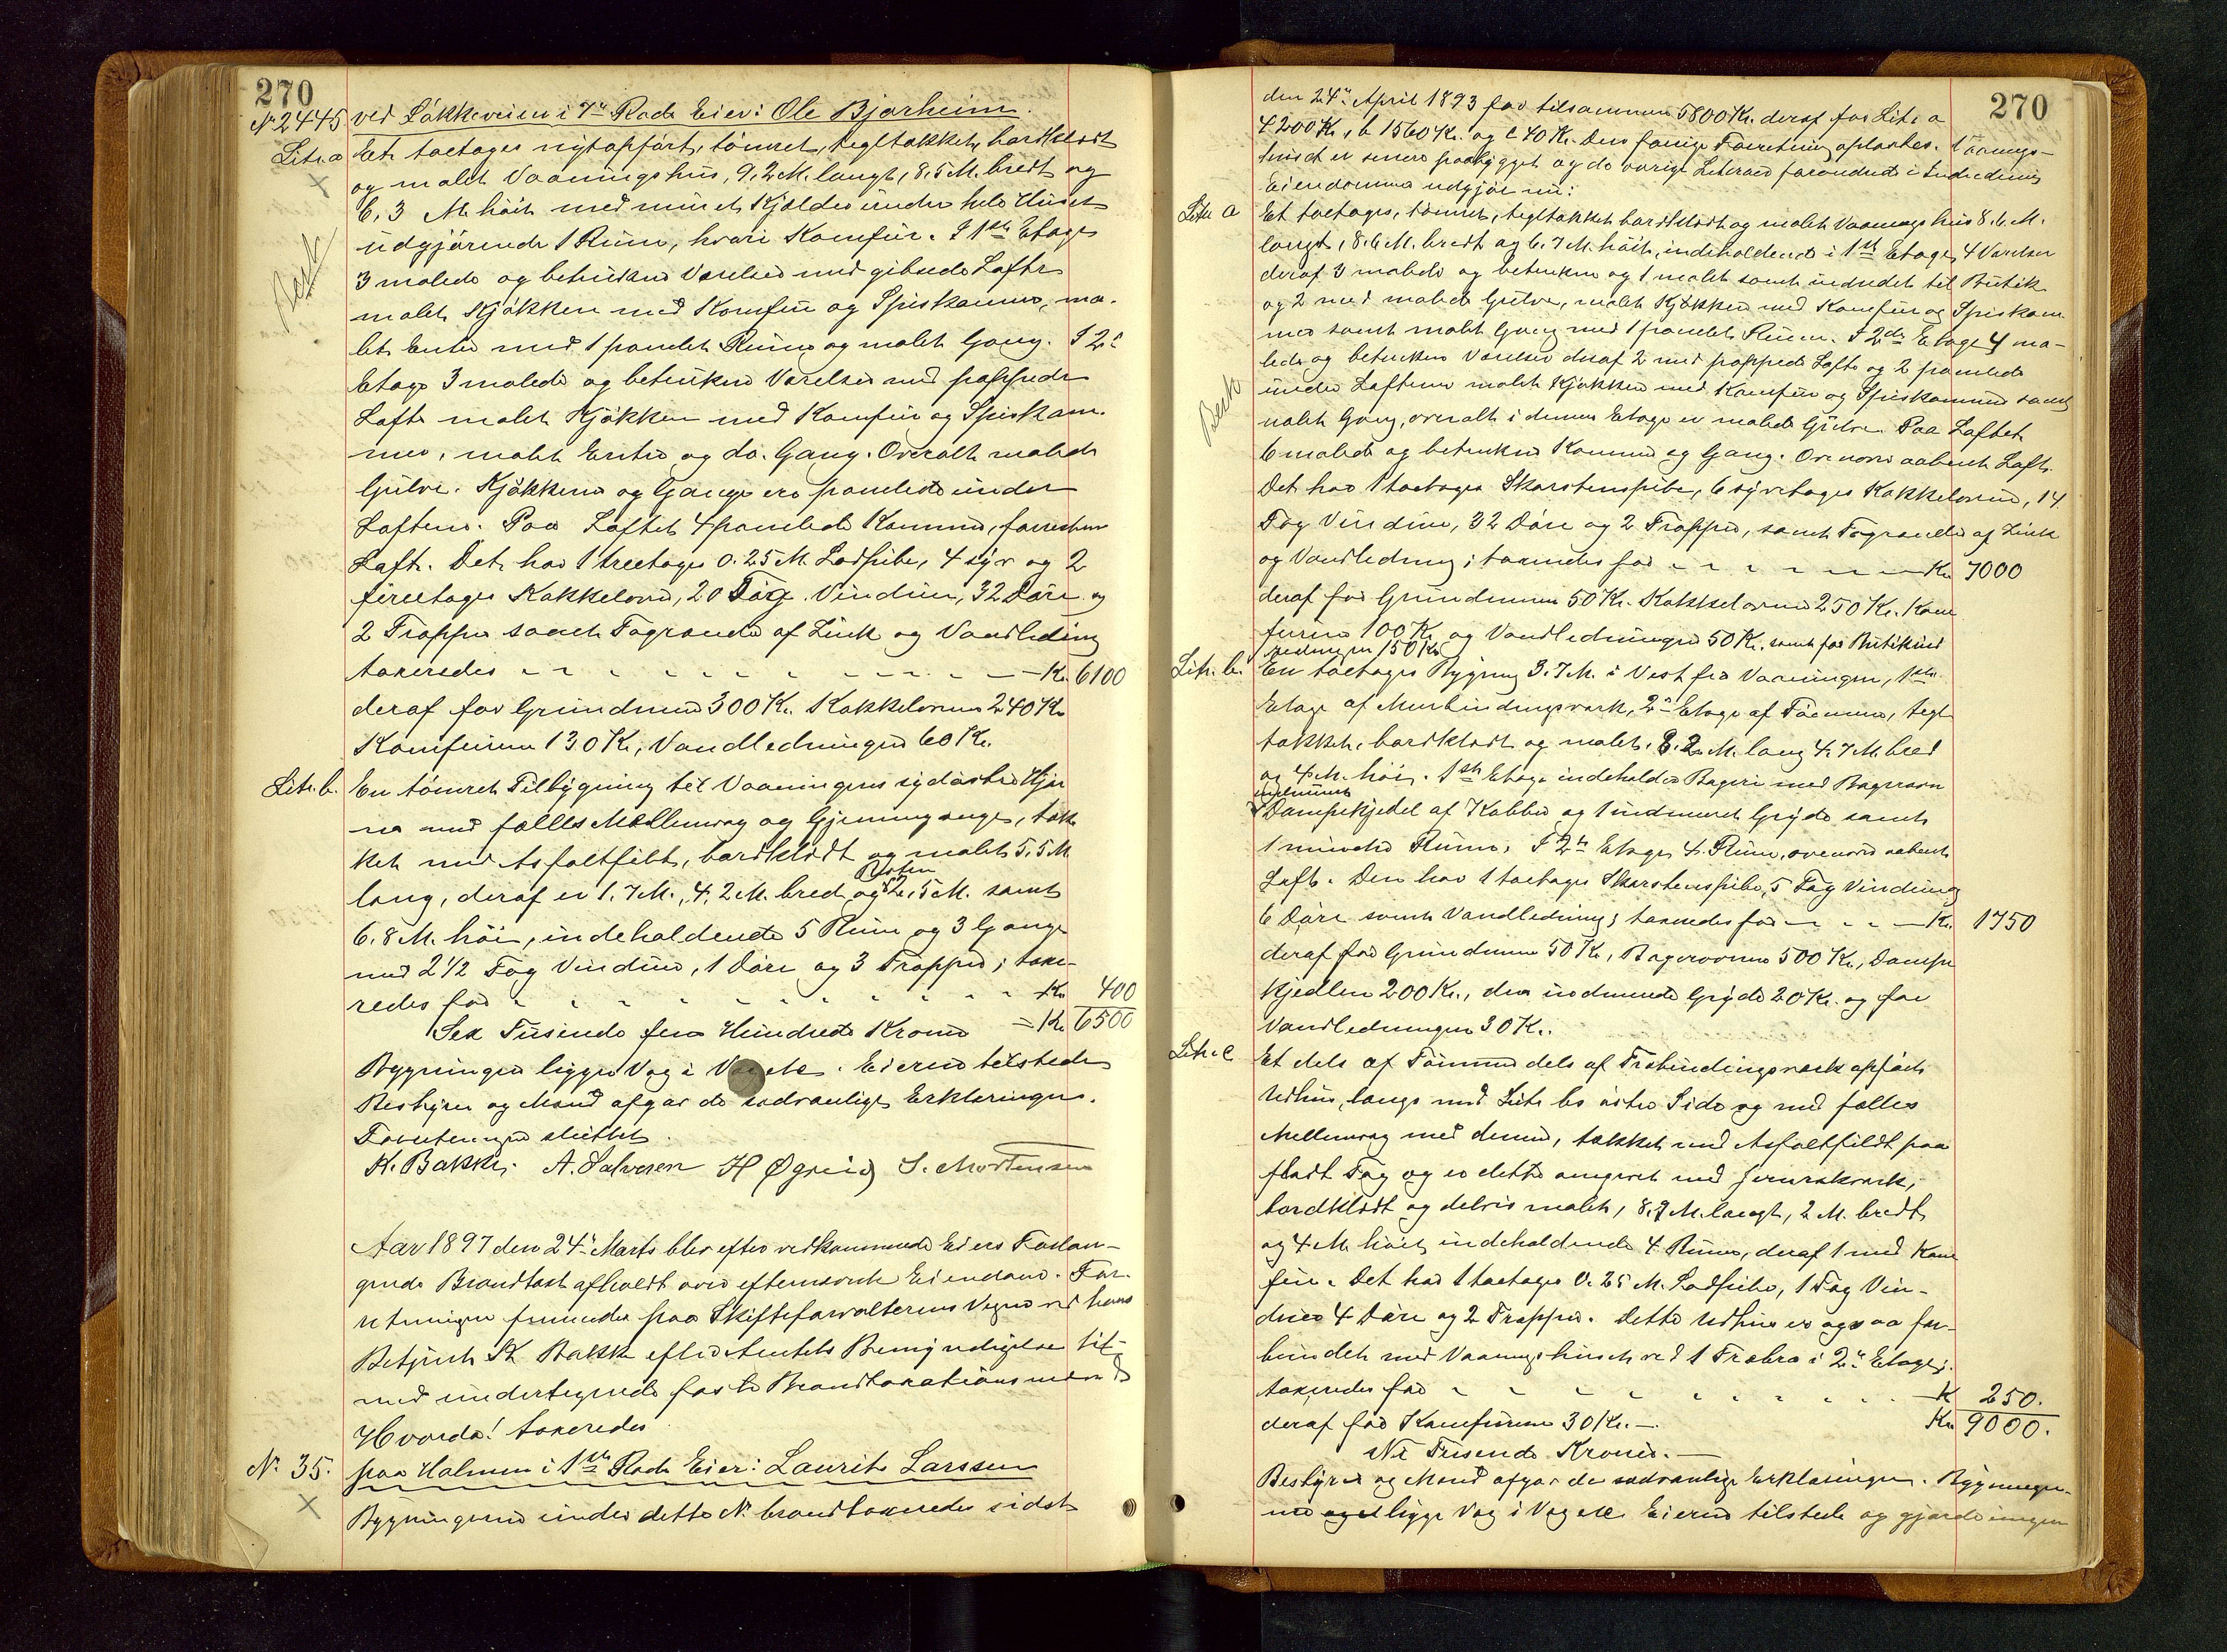 270
No 2445 ved Løkkeveien i 7de Rode Eier: Ole Bjorheim.
Litr. a Et toetages nyt opført, tømret, tegltækket, bordklædt
og malet Vaaningshus, 9,2 M. langt, 8,5 M. bredt og
6,3 M. høit med muret Kjælder under hele Huset
udgjørende 1 Rum, hvori Komfur. I 1ste Etage
3 malede og betrukne Værelser med gibsede Lofte
malet Kjøkken med Komfur og Spiskammer, ma-
let Entre med 1 panelet Rum og malet Gang. I 2den
Etage 3 malede og betrukne Værelser med pappede
Lofte malet Kjøkken med Komfur og Spiskam-
mer, malet Entre og do. Gang. Overalt malede
Gulve. Kjøkkener og Gange ere panelede under
Loftene. Paa Loftet 4 panelede Kammer, forresten
Loft. Det har 1 treetages 0.25 M. Lodpibe, 4 syv og 2
fireetages Kakkelovne, 20 Fag Vinduer, 32 Døre og
2 Trapper samt Tagrender af Zink og Vandledning
taxeredes - - - - - Kr. 6100
deraf for Grundmur 300 Kr. Kakkelovne 240 Kr.
Komfurene 130 Kr, Vandledningen 60 Kr.
Litr. b. En tømret Tilbygning til Vaaningens sydøstre Hjør-
ne med fælles Mellemvæg og Gjennemgange, tæk-
ket med Asfaltfilt, bordklædt og malet 5,5 M.
lang, deraf er 1,7 M., 4,2 M. bred og Resten 2,5 M. samt
6.8 M. høi, indeholdende 5 Rum og 3 Gange
med 2 1/2 Fag Vinduer, 1 Døre og 3 Trapper; taxe-
redes for - - - - - Kr. 400
Sex Tusinde fem Hundrede Kroner = Kr. 6500
Bygningen ligger Væg i Væg. Eieren tilstede
Bestyrer og Mænd afgav de sædvanlige Erklæringer.
Forretningen sluttet.
K. Bakke. A. Salvesen H Øgreid S. Mortensen
Aar 1897 den 24de Marts blev efter vedkommende Eiers Forlan-
gende Brandtaxt afholdt over efternævnte Eiendom. For-
retningen fremmedes paa Skifteforvalterens Vegne ved hans
Betjent K Bakke efter Amtets Bemyndigelse til-
med undertegnede faste Brandtaxationsmænd
Hvorda! taxeredes
No. 35. paa Holmen i 1ste Rode Eier: Laurits Larssen
Bygningerne under dette No. brandtaxeredes sidst
Besk
270
den 24de April 1893 for tilsammen 5800 Kr. deraf for Litr. a
4200 Kr, b 1560 Kr. og c 40 Kr. Den forrige Forretning oplæstes. Vaanings-
huset er senere paabygget og de øvrige Literaer forandrede i Indredning
Eiendommen udgjør nu:
Litr. a Et toetages, tømret, tegltækket bordklædt og malet Vaaningshus 8.6 M.
langt, 8.6 M. bredt og 6.7 M. høit, indeholdende i 1ste Etage 4 Værelser
deraf 3 malede og betrukne og 1 malet samt indredet til Butik
og 2 med malede Gulve, malet Kjøkken med Komfur og Spiskam-
mer samt malet Gang med 1 panelet Rum. I 2den Etage 4 ma-
lede og betrukne Værelser deraf 2 med pappede Lofte og 2 panelede
under Loftene malet Kjøkken med Komfur og Spiskammer samt
malet Gang, overalt i denne Etage er malede Gulve. Paa Loftet
6 malede og betrukne Kammer og Gang. Ovenover aabent Loft.
Det har 1 toetages Skorstenspibe, 6 syvetages Kakkelovne, 14
Fag Vinduer, 32 Døre og 2 Trapper, samt Tagrender af Zink
og Vandledning; taxeredes for - - - - - Kr. 7000
deraf for Grundmuren 50 Kr. Kakkelovne 250 Kr. Kom-
furene 100 Kr. og Vandledningen 50 Kr. samt for Butikind-
redningen 150 Kr.
Litr. b. En toetages Bygning 3.7 M. i Vest fra Vaaningen, 1ste
Etage af Murbindingsværk, 2den Etage af Tømmer, tegl-
tækket, bordklædt og malet, 8.2 M. lang 4.7 M. bred
og 4 M. høi. 1ste Etage indeholder Bageri med Bagerovn
indmuret
Dampkjedel af Kobber og 1 indmuret Gryde samt
1 mindre Rum. I 2den Etage 4 Rum, ovenover aabent
Loft. Den har 1 toetages Skorstenspibe, 5 Fag Vinduer
6 Døre samt Vandledning; taxeredes for - - - Kr. 1750
deraf for Grundmuren 50 Kr, Bagerovnen 500 Kr, Damp-
kjedlen 200 Kr., den indmurede Gryde 20 Kr. og for
Vandledningen 30 Kr.
Litr. c Et dels af Tømmer dels af Træbindingsværk opført
Udhus, langs med Litr. bs østre Side og med fælles
Mellemvæg med denne, tækket med Asfaltfildt paa
fladt Tag og er dette omgivet med Jernrækværk,
bordklædt og delvis malet, 8.7 M. langt, 2 M. bredt
og 4 M. høit, indeholdende 4 Rum, deraf 1 med Kom-
fur. Det har 1 toetages 0.25 M. Lodpibe, 1 Fag Vin-
duer 4 Døre og 2 Trapper. Dette Udhus er ogsaa for-
bundet med Vaaningshuset ved 1 Træbro i 2den Etage;
taxeredes for - - - - - Kr. 250.
deraf for Komfuren 30 Kr. — Kr. 9000.
Ni Tusende Kroner. —
Bestyrer og Mænd afgav de sædvanlige Erklæringer. Bygninger-
ne ligge Væg i Væg. Eieren tilstede og gjorde ingen
Besk